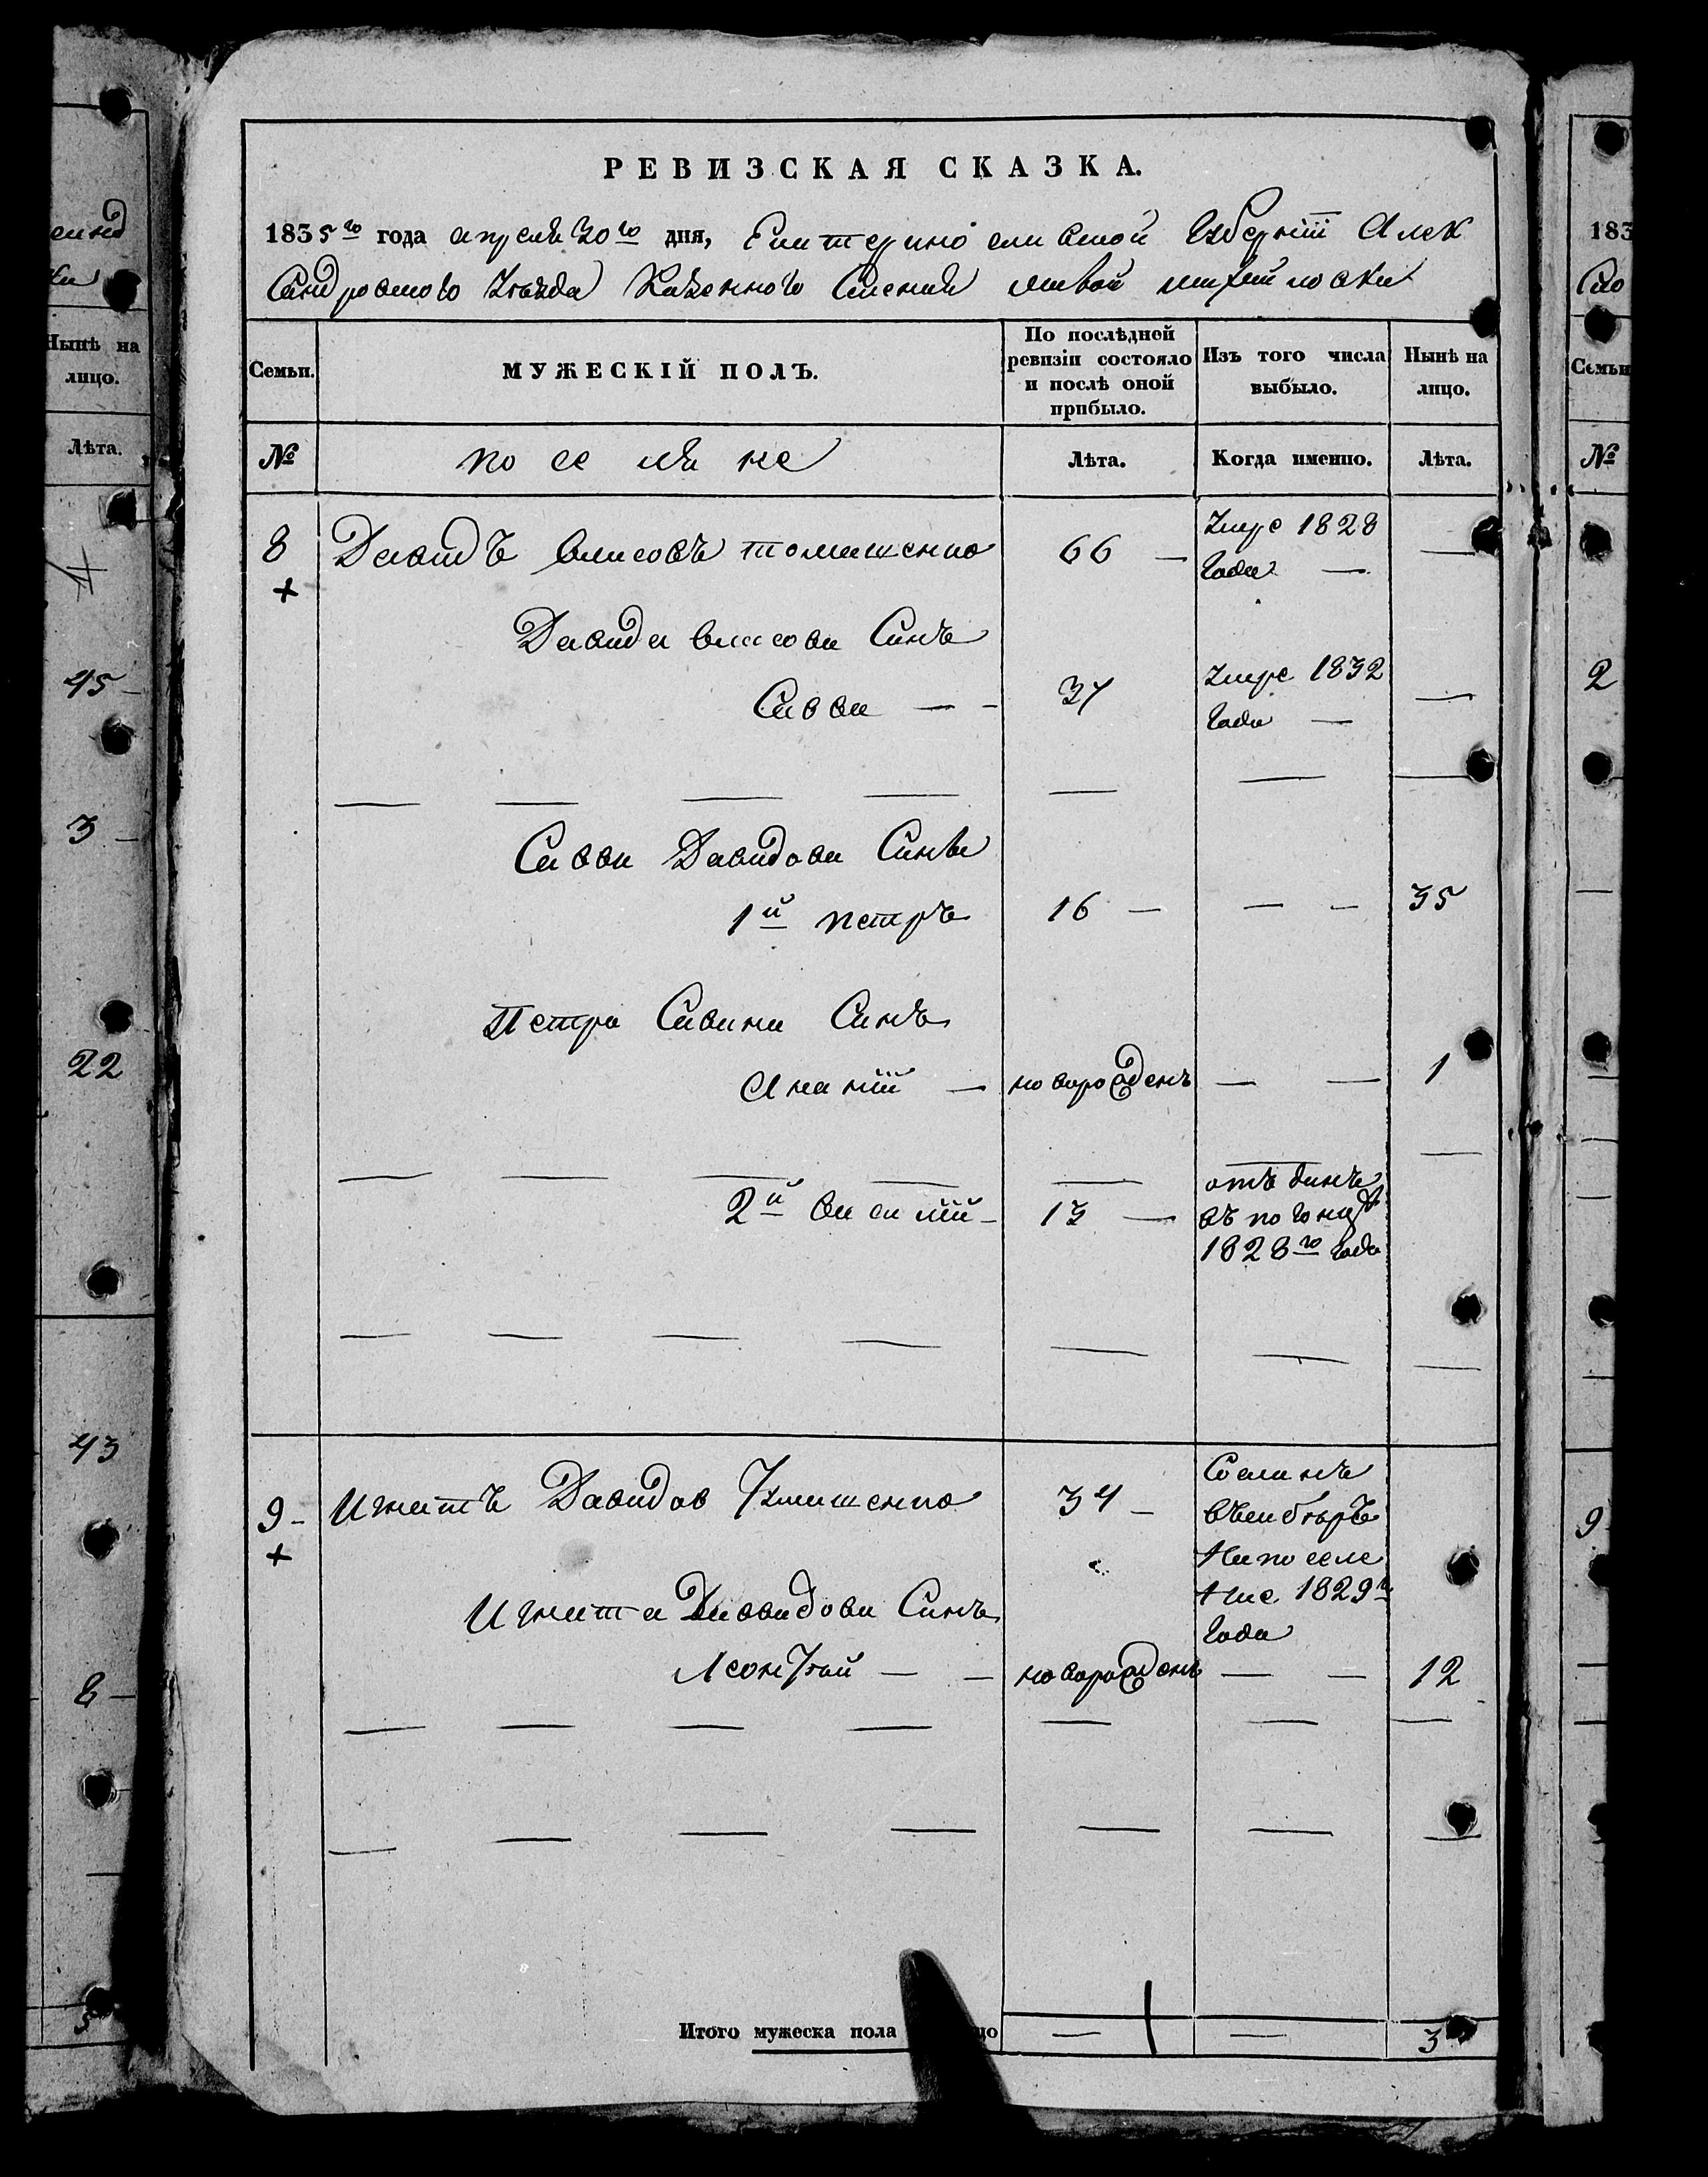 РЕВИЗСКАЯ СКАЗКА.
1835го года апреля 30го дня, Екатеринославской Губернїи Алек
сандровского Уезда Казенного Селения
Семьи.
МУЖЕСКІЙ ПОЛЪ.
По послѣдней ревизіи состояло и послѣ оной прибыло.
Изъ того числа выбыло.
Нынѣ на лицо.
№
Лѣта.
Когда именно.
Лѣта.
8
Давидъ власовъ
66 —
Умре 1828
года —
—
+
Давида власова Синъ
Савва — —
37
Умре 1832
года —
—
Саввы Давидова Сины
1й петръ
16 —
— —
35
Петра Савина Синъ
Ананїй —
новорожденъ
— —
1
2й Василїй —
13 —
отъданъ
въ погонцы
1828го года
9 -
Игнатъ Давидов
34 —
Сосланъ
въ Сибѣръ
на поселе
ние 1829го
года
+
Игната Давидова Синъ
Леонтий — —
новорожденъ
— —
12
Итого мужеска пола
—
—
3
Нынѣ на
лицо.
Лѣта.
45 —
3 —
22
43
8 —
5
183
Семьи
№
2
9